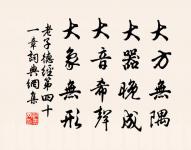 大方無隅
大器晚成
大音希聲
大象無形
老子德經第四十
一章詞典網集